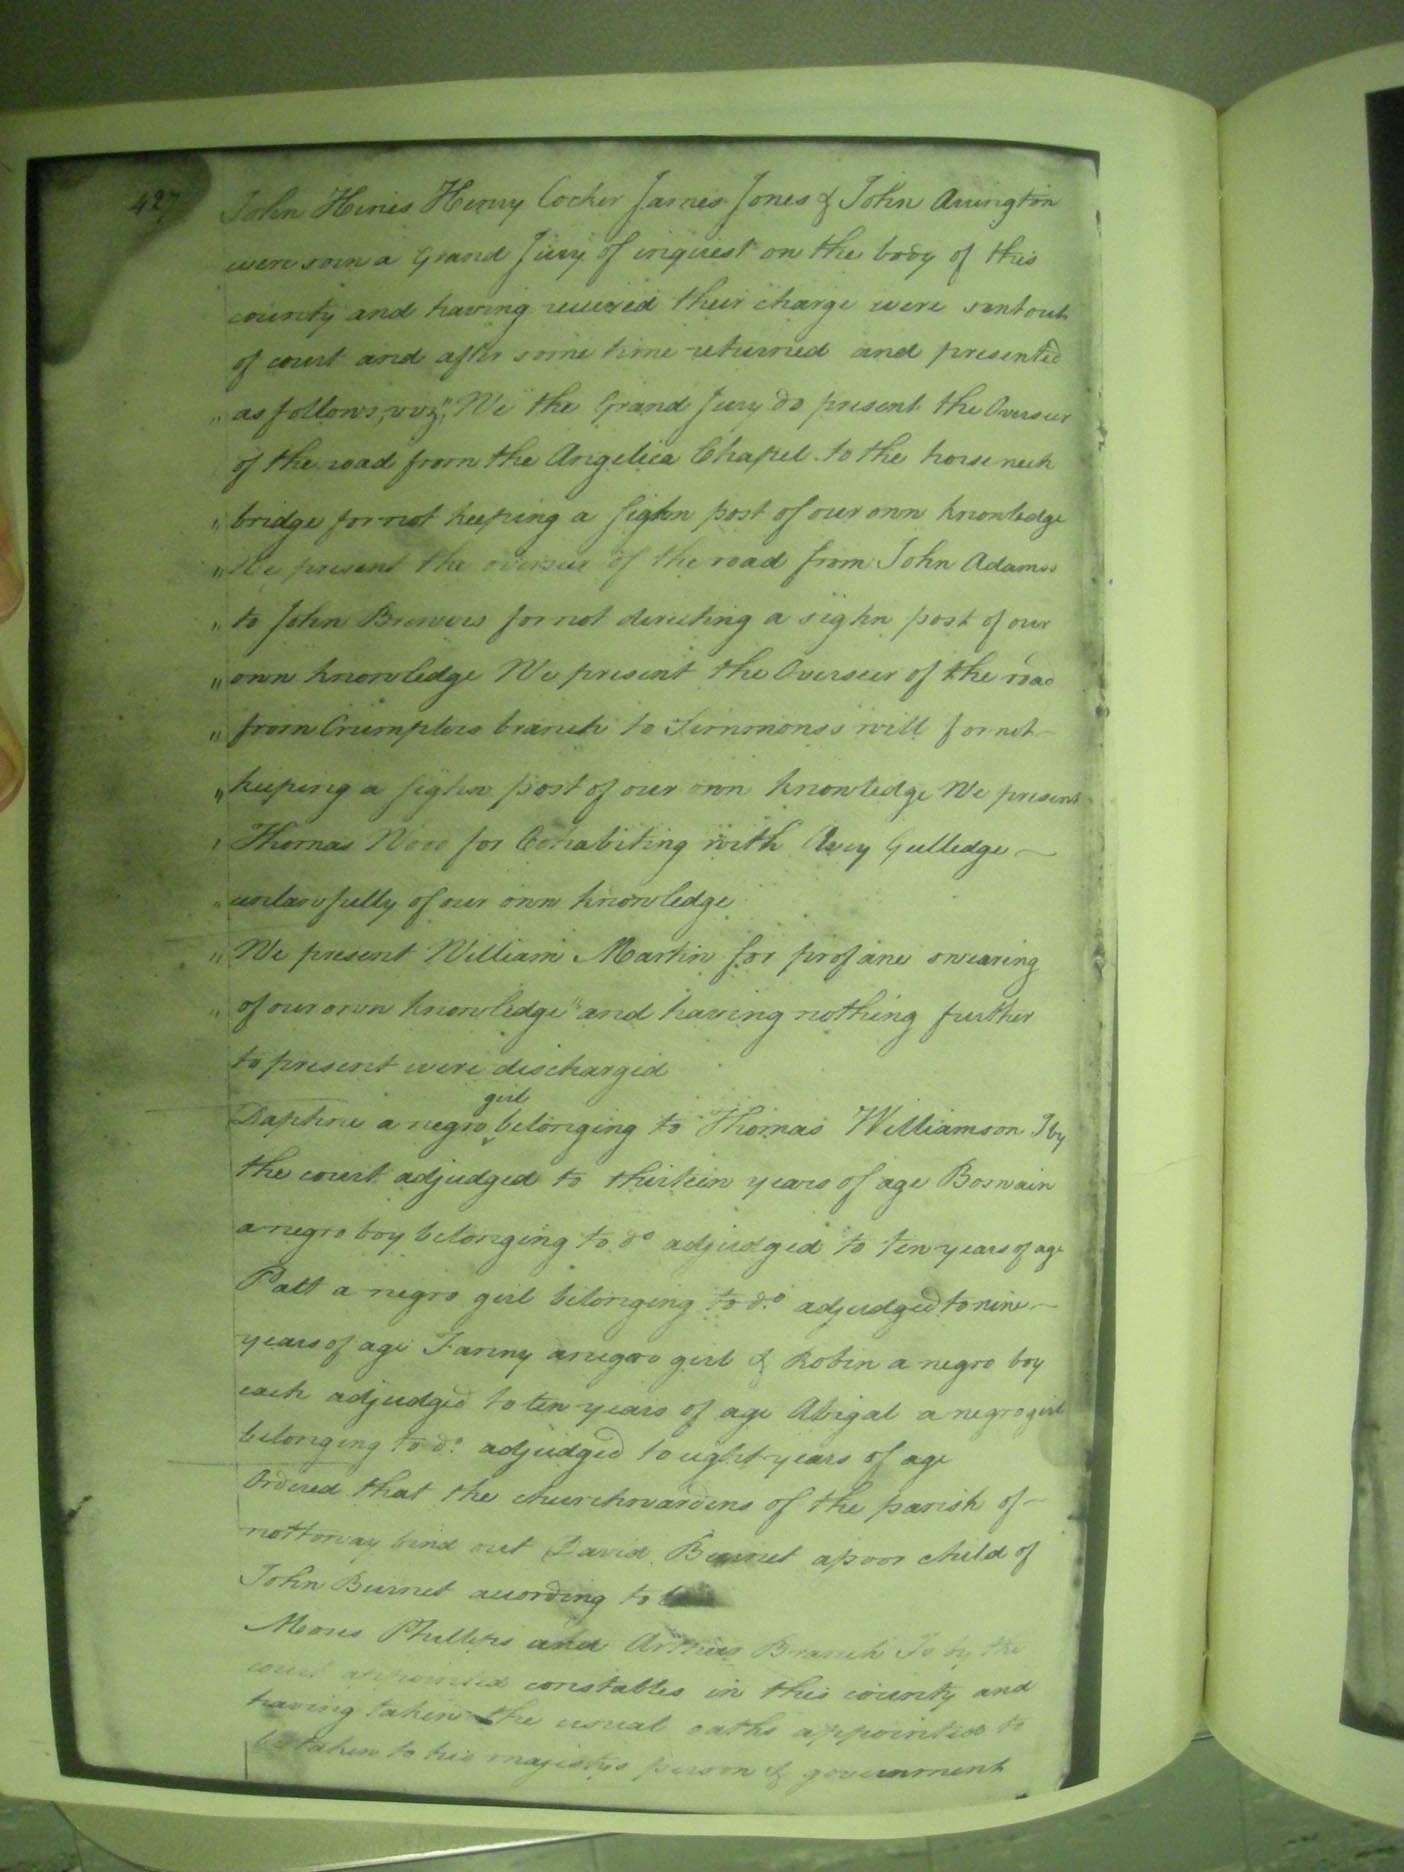 427
John Hines Henry Cocker James Jones & John Arrington
were sworn a Grand Jury of inquest on the body of this
county and having received their charge were sent out
of court and after some time returned and presented
" as follows, viz." We the Grand Jury do present the Overseer
of the road from the Angelica Chapel to the horse neck
" bridge for not keeping a sighn post of our own knowledge
" We present the overseer of the road from John Adamss
" to John Browers for not directing a sighn post of our
" own knowledge We present the Overseer of the road
" from Crumplers branch to Simmonss mill for not
" keeping a sighn post of our own knowledge We present
" Thomas Wood for Cohabiting with Avey Gulledge
" unlawfully of our own knowledge
" We present William Martin for profane swearing
" of our own knowledge" and having nothing further
to present were discharged
girl
Daphne a negro belonging to Thomas Williamson I by
the court adjudged to thirteen years of age Boswain
a negro boy belonging to do adjudged to ten years of age
Patt a negro girl belonging to do adjudged to nine
years of age Fanny a negro girl & Robin a negro boy
each adjudged to ten years of age Abigal a negro girl
belonging to do adjudged to eight years of age
Ordered that the churchwardens of the parish of
nottoway bind out David Burnet a poor child of
John Burnet according to
Moses Phillips and Arthur Branch Is by the
court appointed constables in this county and
having taken the usual oaths appointed to
be taken to his majestys person & government